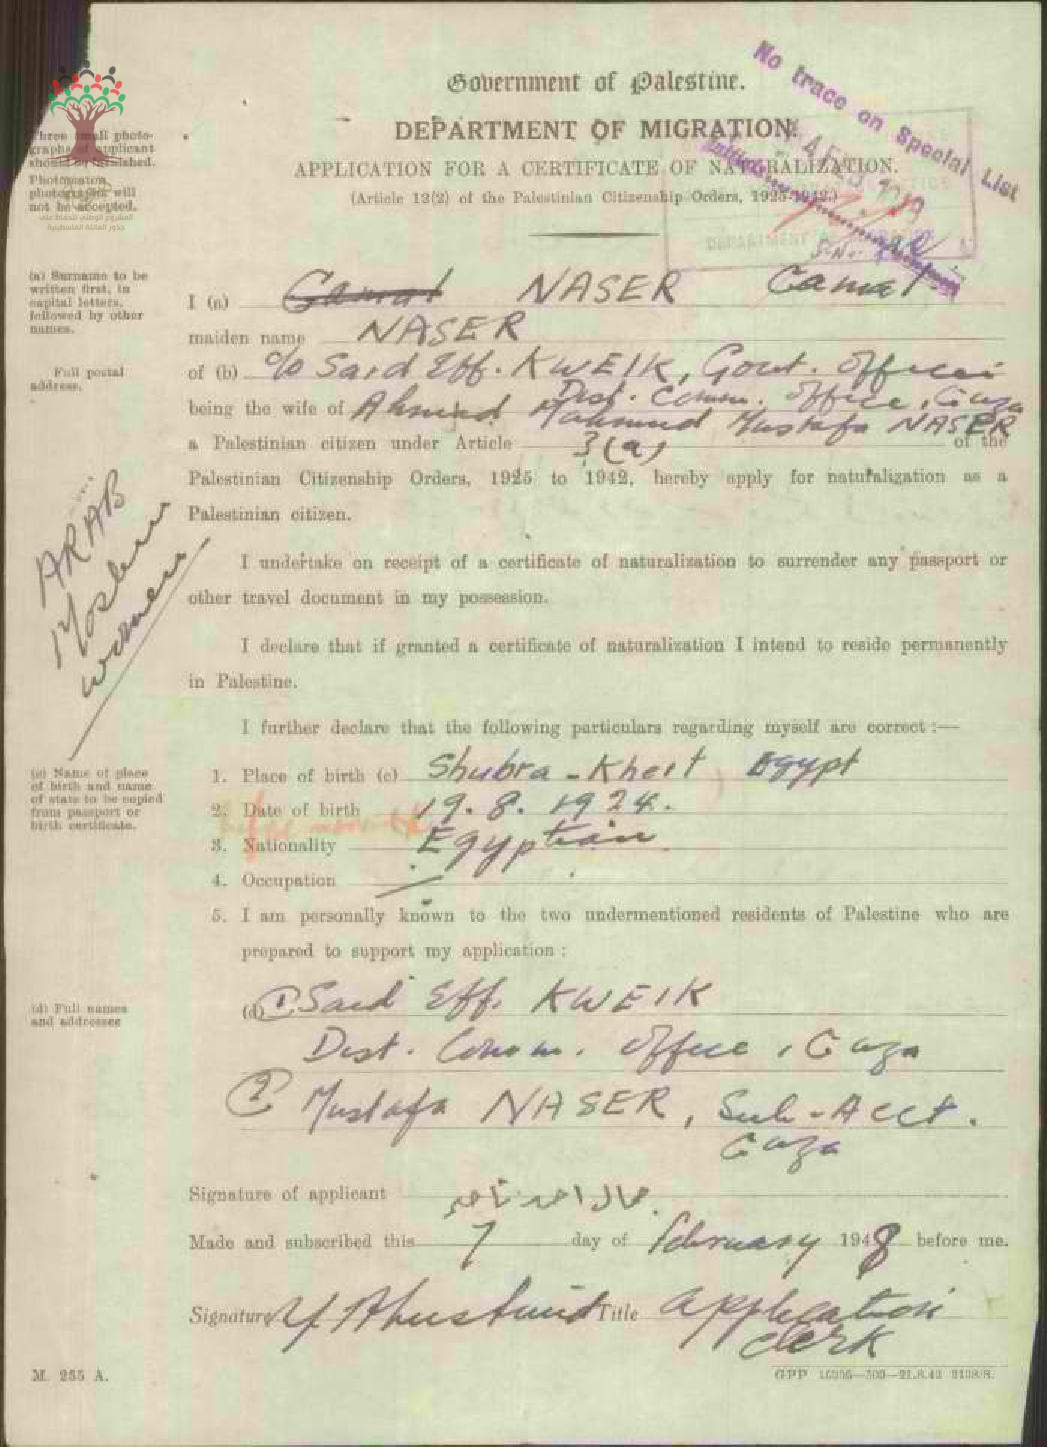 Government of Palestine.
DEPARTMENT OF MIGRATION.
APPLICATION FOR A CERTIFICATE OF NATURALIZATION.
(Article 12(2) of the Palestinian Citizenship Orders, 1925-1942.)
No trace on Special List
Three small photo-
graphs of applicant
should be furnished.
Photomaton
photographs will
not be accepted.
المشروع الوطني للحفاظ على
جذور العائلة الفلسطينية
(a) Surname to be
written first, in
capital letters,
followed by other
names.
I (a) Gamal NASER Gamal
maiden name NASER
Full postal
address.
of (b) c/o Said Eff. KWEIK, Govt. Officer
Dist. Comm. Office, Gaza
being the wife of Ahmad Mahmud Mustafa NASER
a Palestinian citizen under Article 3(a) of the
Palestinian Citizenship Orders, 1925 to 1942, hereby apply for naturalization as a
Palestinian citizen.
ARAB
Moslem
women
I undertake on receipt of a certificate of naturalization to surrender any passport or
other travel document in my possession.
I declare that if granted a certificate of naturalization I intend to reside permanently
in Palestine.
I further declare that the following particulars regarding myself are correct :—
(c) Name of place
of birth and name
of state to be copied
from passport or
birth certificate.
1. Place of birth (c) Shubra - Kheit Egypt
2. Date of birth 19. 8. 1924.
3. Nationality Egyptian
4. Occupation —
5. I am personally known to the two undermentioned residents of Palestine who are
prepared to support my application :
(d) Full names
and addresses
(d) 1 Said Eff. KWEIK
Dist. Comm. Office, Gaza
2 Mustafa NASER, Sub-Acct.
Gaza
Signature of applicant
Made and subscribed this 7 day of February 1948 before me.
Signature Title Application
Clerk
M. 255 A.